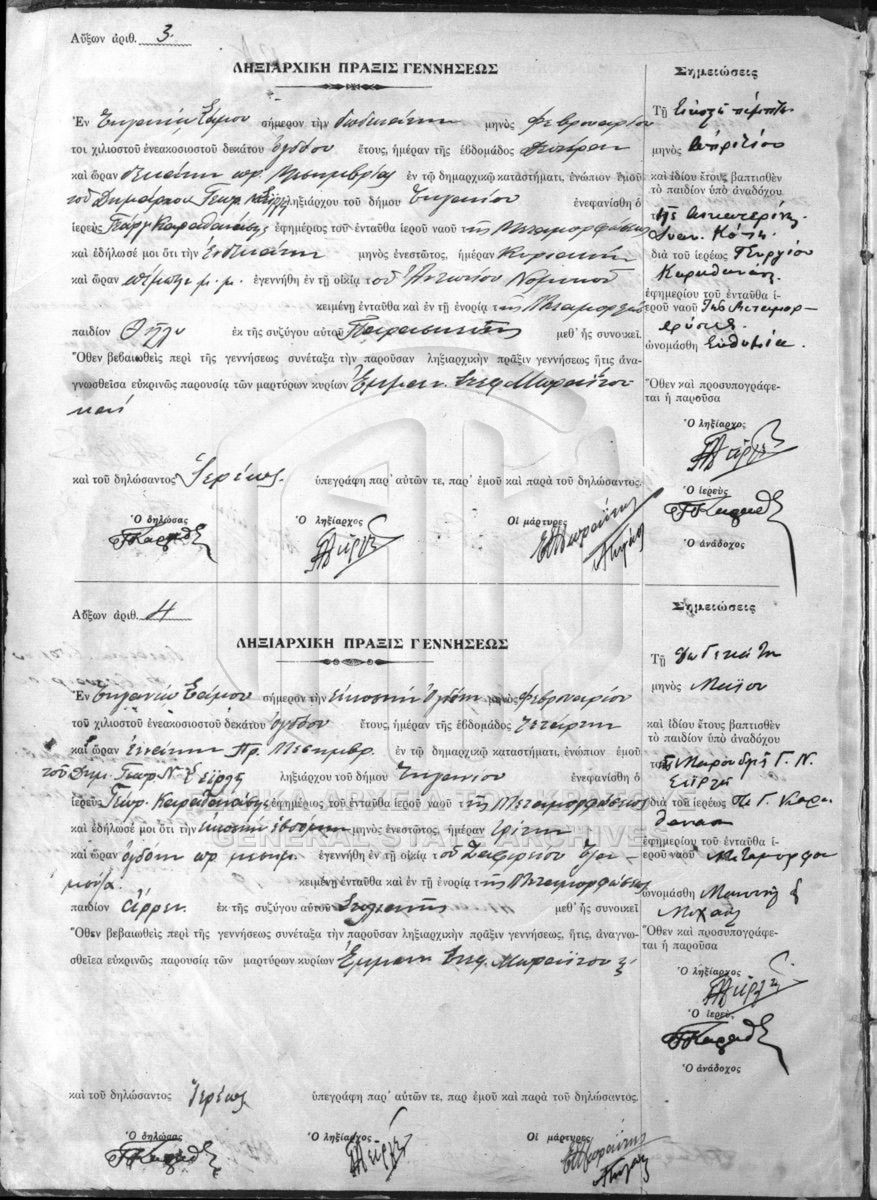 Αὔξων ἀριθ. 3.
ΛΗΞΙΑΡΧΙΚΗ ΠΡΑΞΙΣ ΓΕΝΝΗΣΕΩΣ
Ἐν Σάμου σήμερον τὴν δωδεκάτην μηνὸς Φεβρουαρίου
τοι χιλιοστοῦ ἐνεακοσιοστοῦ δεκάτου ὀγδόου ἔτους, ἡμέραν τῆς ἑβδομάδος Δευτέραν
καὶ ὥραν δεκάτην πρ. Μεσημβρίας ἐν τῷ δημαρχικῷ καταστήματι, ἐνώπιον ἐμοῦ
τοῦ Δημάρχου Γεωρ. ληξιάρχου τοῦ δήμου ἐνεφανίσθη ὁ
ἱερεὺς Γεώργ. Καραθανάσης ἐφημέριος τοῦ ἐνταῦθα ἱεροῦ ναοῦ τῆς Μεταμορφώσεως
καὶ ἐδήλωσέ μοι ὅτι τὴν ἑνδεκάτην μηνὸς ἐνεστῶτος, ἡμέραν Κυριακὴν
καὶ ὥραν πέμπτην μ. μ. ἐγεννήθη ἐν τῇ οἰκίᾳ τοῦ Ἀντωνίου Νομικοῦ
κειμένῃ ἐνταῦθα καὶ ἐν τῇ ἐνορίᾳ τῆς Μεταμορφώσ
παιδίον θῆλυ ἐκ τῆς συζύγου αὐτοῦ Παρασκευῆς μεθ᾽ ἧς συνοικεῖ.
Ὅθεν βεβαιωθεὶς περὶ τῆς γεννήσεως συνέταξα τὴν παροῦσαν ληξιαρχικὴν πρᾶξιν γεννήσεως ἥτις ἀνα-
γνωσθεῖσα εὐκρινῶς παρουσίᾳ τῶν μαρτύρων κυρίων Ἐμμαν. Στεφ. Μαραΐτου
καὶ
καὶ τοῦ δηλώσαντος Ἱερέως ὑπεγράφη παρ᾽ αὐτῶν τε, παρ᾽ ἐμοῦ καὶ παρὰ τοῦ δηλώσαντος.
Ὁ δηλώσας Ὁ ληξίαρχος Οἱ μάρτυρες
Σημειώσεις
Τῇ Εἰκοστῇ πέμπτῃ
μηνὸς Ἀπριλίου
καὶ ἰδίου ἔτους βαπτισθὲν
τὸ παιδίον ὑπὸ ἀναδόχου
τῆς Αἰκατερίνης
διὰ τοῦ ἱερέως Γεωργίου
Καραθανάση
ἐφημερίου τοῦ ἐνταῦθα ἱ-
εροῦ ναοῦ τῆς Μεταμορ-
φώσεως
ὠνομάσθη Εὐθυμία.
Ὅθεν καὶ προσυπογράφε-
ται ἡ παροῦσα
Ὁ ληξίαρχος
Ὁ ἱερεὺς
Ὁ ἀνάδοχος
Αὔξων ἀριθ. 4
ΛΗΞΙΑΡΧΙΚΗ ΠΡΑΞΙΣ ΓΕΝΝΗΣΕΩΣ
Ἐν Σάμου σήμερον τὴν εἰκοστὴν ὀγδόην μηνὸς Φεβρουαρίου
τοῦ χιλιοστοῦ ἐνεακοσιοστοῦ δεκάτου ὀγδόου ἔτους, ἡμέραν τῆς ἑβδομάδος Τετάρτην
καὶ ὥραν ἐννάτην Πρ. Μεσημβρ. ἐν τῷ δημαρχικῷ καταστήματι, ἐνώπιον ἐμοῦ
τοῦ Δημ. Γεωρ. Ν. ληξιάρχου τοῦ δήμου ἐνεφανίσθη ὁ
ἱερεὺς Γεώρ. Καραθανάσης ἐφημέριος τοῦ ἐνταῦθα ἱεροῦ ναοῦ τῆς Μεταμορφώσεως
καὶ ἐδήλωσέ μοι ὅτι τὴν εἰκοστὴν ἑβδόμην μηνὸς ἐνεστῶτος, ἡμέραν Τρίτην
καὶ ὥραν ὀγδόην πρ. μεσημ. ἐγεννήθη ἐν τῇ οἰκίᾳ τοῦ
κειμένῃ ἐνταῦθα καὶ ἐν τῇ ἐνορίᾳ τῆς Μεταμορφώσεως
παιδίον ἄρρεν ἐκ τῆς συζύγου αὐτοῦ μεθ᾽ ἧς συνοικεῖ
Ὅθεν βεβαιωθεὶς περὶ τῆς γεννήσεως συνέταξα τὴν παροῦσαν ληξιαρχικὴν πρᾶξιν γεννήσεως, ἥτις, ἀναγνω-
σθεῖσα εὐκρινῶς παρουσίᾳ τῶν μαρτύρων κυρίων Ἐμμαν. Στεφ. Μαραΐτου
καὶ τοῦ δηλώσαντος Ἱερέως ὑπεγράφη παρ᾽ αὐτῶν τε, παρ ἐμοῦ καὶ παρὰ τοῦ δηλώσαντος.
Ὁ δηλώσας Ὁ ληξίαρχος Οἱ μάρτυρες
Σημειώσεις
Τῇ Δωδεκάτῃ
μηνὸς Μαΐου
καὶ ἰδίου ἔτους βαπτισθὲν
τὸ παιδίον ὑπὸ ἀναδόχου
Γ. Ν.
διὰ τοῦ ἱερέως Γ. Καρα
θανάση
ἐφημερίου τοῦ ἐνταῦθα ἱ-
εροῦ ναοῦ Μεταμορφώ
ὠνομάσθη
Μιχαὴλ
Ὅθεν καὶ προσυπογράφε-
ται ἡ παροῦσα
Ὁ ληξίαρχος
Ὁ ἱερεὺς
Ὁ ἀνάδοχος
ΓΕΝΙΚΑ ΑΡΧΕΙΑ ΤΟΥ ΚΡΑΤΟΥΣ
GENERAL STATE ARCHIVES